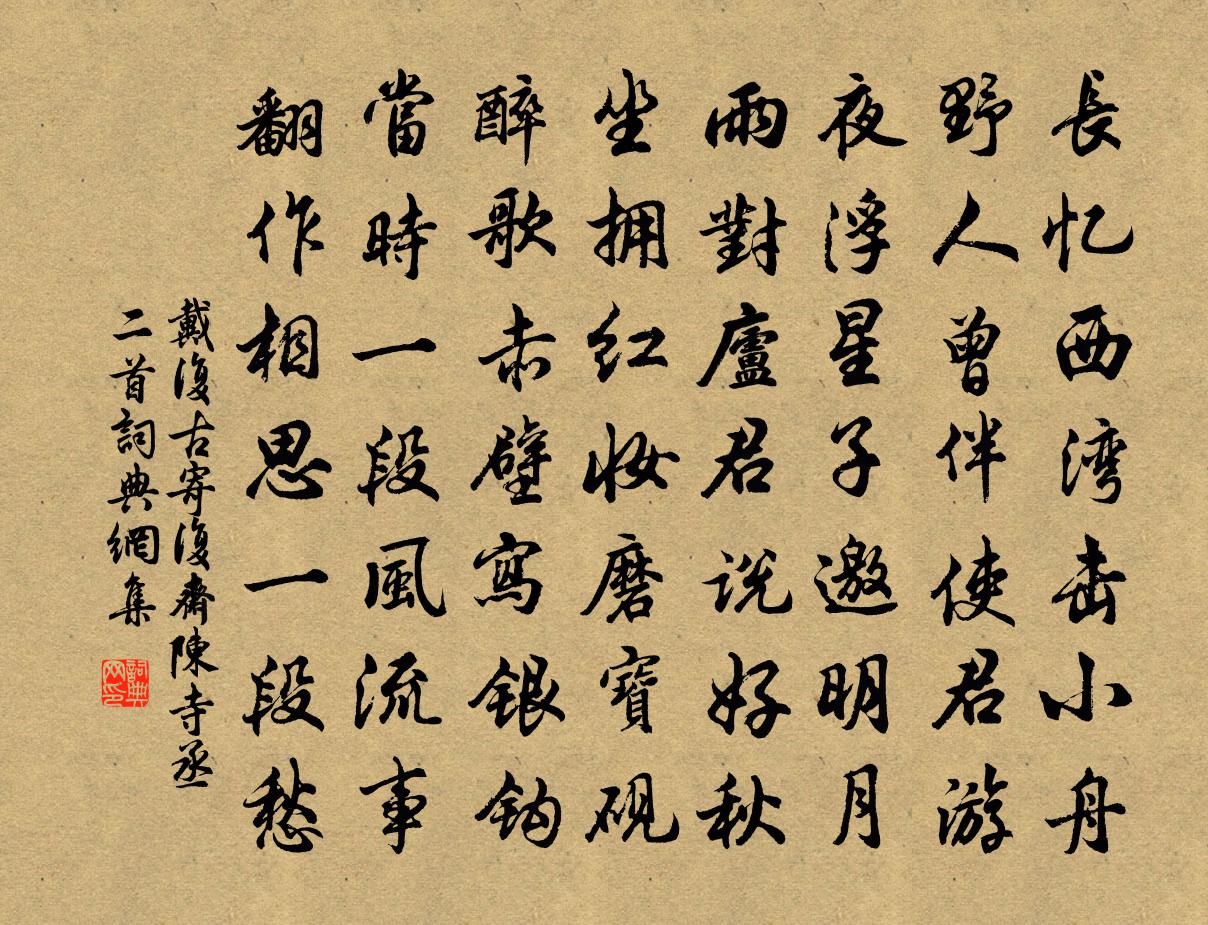 長忆西湾击小舟
野人曾伴使君游
夜浮星子邀明月
雨對廬君说好秋
坐拥红妆磨寶砚
醉歌赤壁寫银钩
當時一段風流事
翻作相思一段愁
戴復古寄復齋陳寺丞
二首詞典網集
詞典
网印